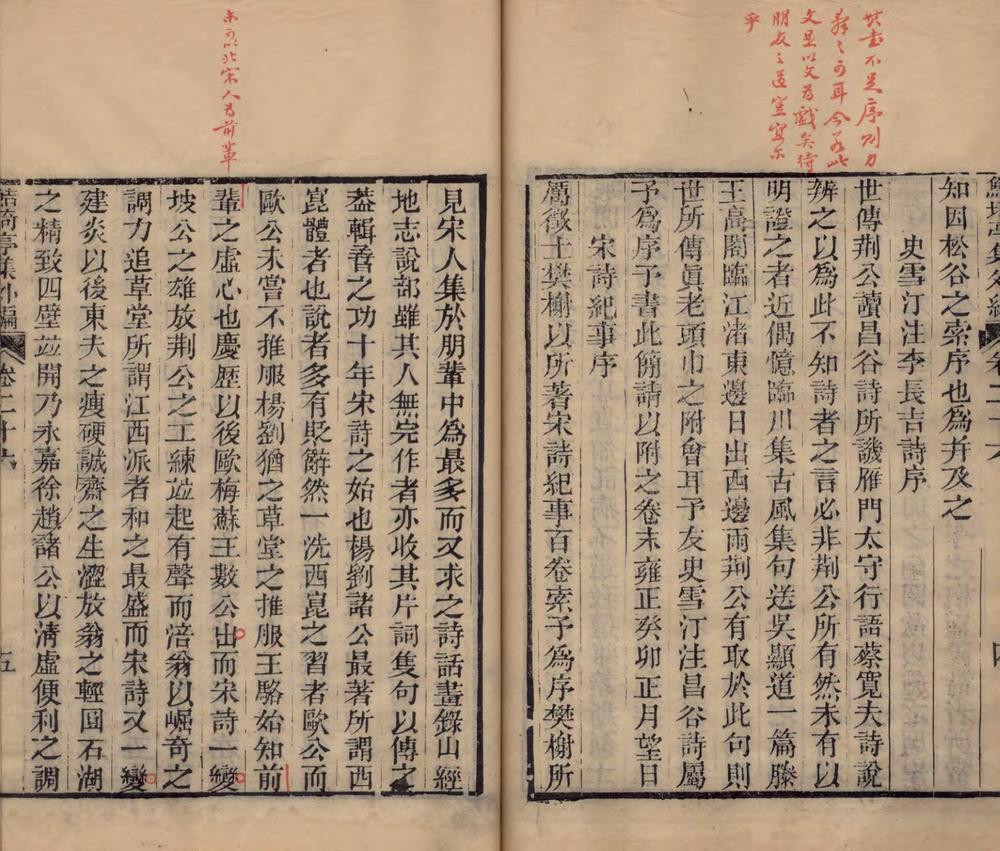 其書不足序則力
辭之可耳今為此
文是以文為戲矣待
朋友之道豈宜爾
乎
知因松谷之索序也為幷及之
史雪汀注李長吉詩序
世傳荆公讀昌谷詩所譏雁門太守行語蔡寬夫詩說
辨之以為此不知詩者之言必非荆公所有然未有以
明證之者近偶憶臨川集古風集句送吳顯道一篇滕
王高閣臨江渚東邊日出西邊雨荆公有取於此句則
世所傳眞老頭巾之附會耳予友史雪汀注昌谷詩屬
予為序予書此簡請以附之卷末雍正癸卯正月望日
宋詩紀事序
厲徵士樊榭以所著宋詩紀事百卷索予為序樊榭所
未可以北宋人為前輩
見宋人集於朋輩中為最多而又求之詩話畫錄山經
地志說部雖其人無完作者亦收其片詞隻句以傳之
葢輯香之功十年宋詩之始也楊劉諸公最著所謂西
崑體者也說者多有貶辭然一洗西崑之習者歐公而
歐公未嘗不推服楊劉猶之草堂之推服王駱始知前
輩之虛心也慶歷以後歐梅蘇王數公出而宋詩一變
坡公之雄放荆公之工練並起有聲而涪翁以崛奇之
調力追草堂所謂江西派者和之最盛而宋詩又一變
建炎以後東夫之瘦硬誠齋之生澀放翁之輕圓石湖
之精致四壁並開乃永嘉徐趙諸公以淸虛便利之調
鮚埼亭集外編 卷二十六 五